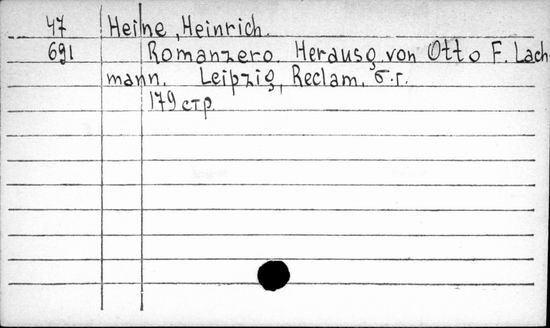 47 Heine, Heinrich.
691 Romanzero. Herausg. von Otto F. Lach
mann. Leipzig, Reclam, б.г.
179 стр.